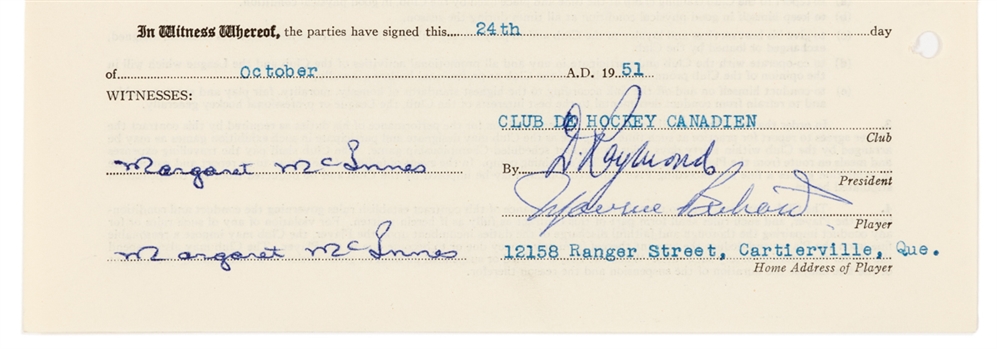 In Witness Whereof, the parties have signed this 24th day
of October A.D. 1951
WITNESSES:
CLUB DE HOCKEY CANADIEN
Club
Margaret McInnes By D. Raymond
President
Maurice Richard
Player
Margaret McInnes 12158 Ranger Street, Cartierville, Que.
Home Address of Player